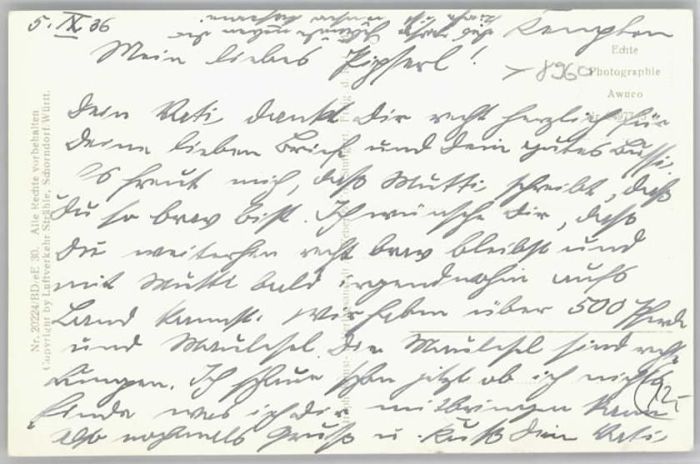 5. IX 36
Kempten
Mein liebes Pipserl!
Dein Vati dankt Dir recht herzlich für
Deine lieben Brief und Dein gutes Bussi.
Es freut mich, daß Mutti schreibt, daß
Du so brav bist. Ich wünsche Dir, daß
Du weiterhin recht brav bleibst und
mit Mutti bald irgendwohin aufs
Land kannst. Wir haben über 500 Pferde
und Maulesel. Die Maulesel sind
Ich schaue schon jetzt ob ich nichts
finde was ich Dir mitbringen kann
Also nochmals Gruß u. Kuß Dein Vati.
8960
12,-
Echte
Photographie
Awuco
Nr. 20224/BD/eE. 30. Alle Rechte vorbehalten
Copyright by Luftverkehr Strähle, Schorndorf Württ.